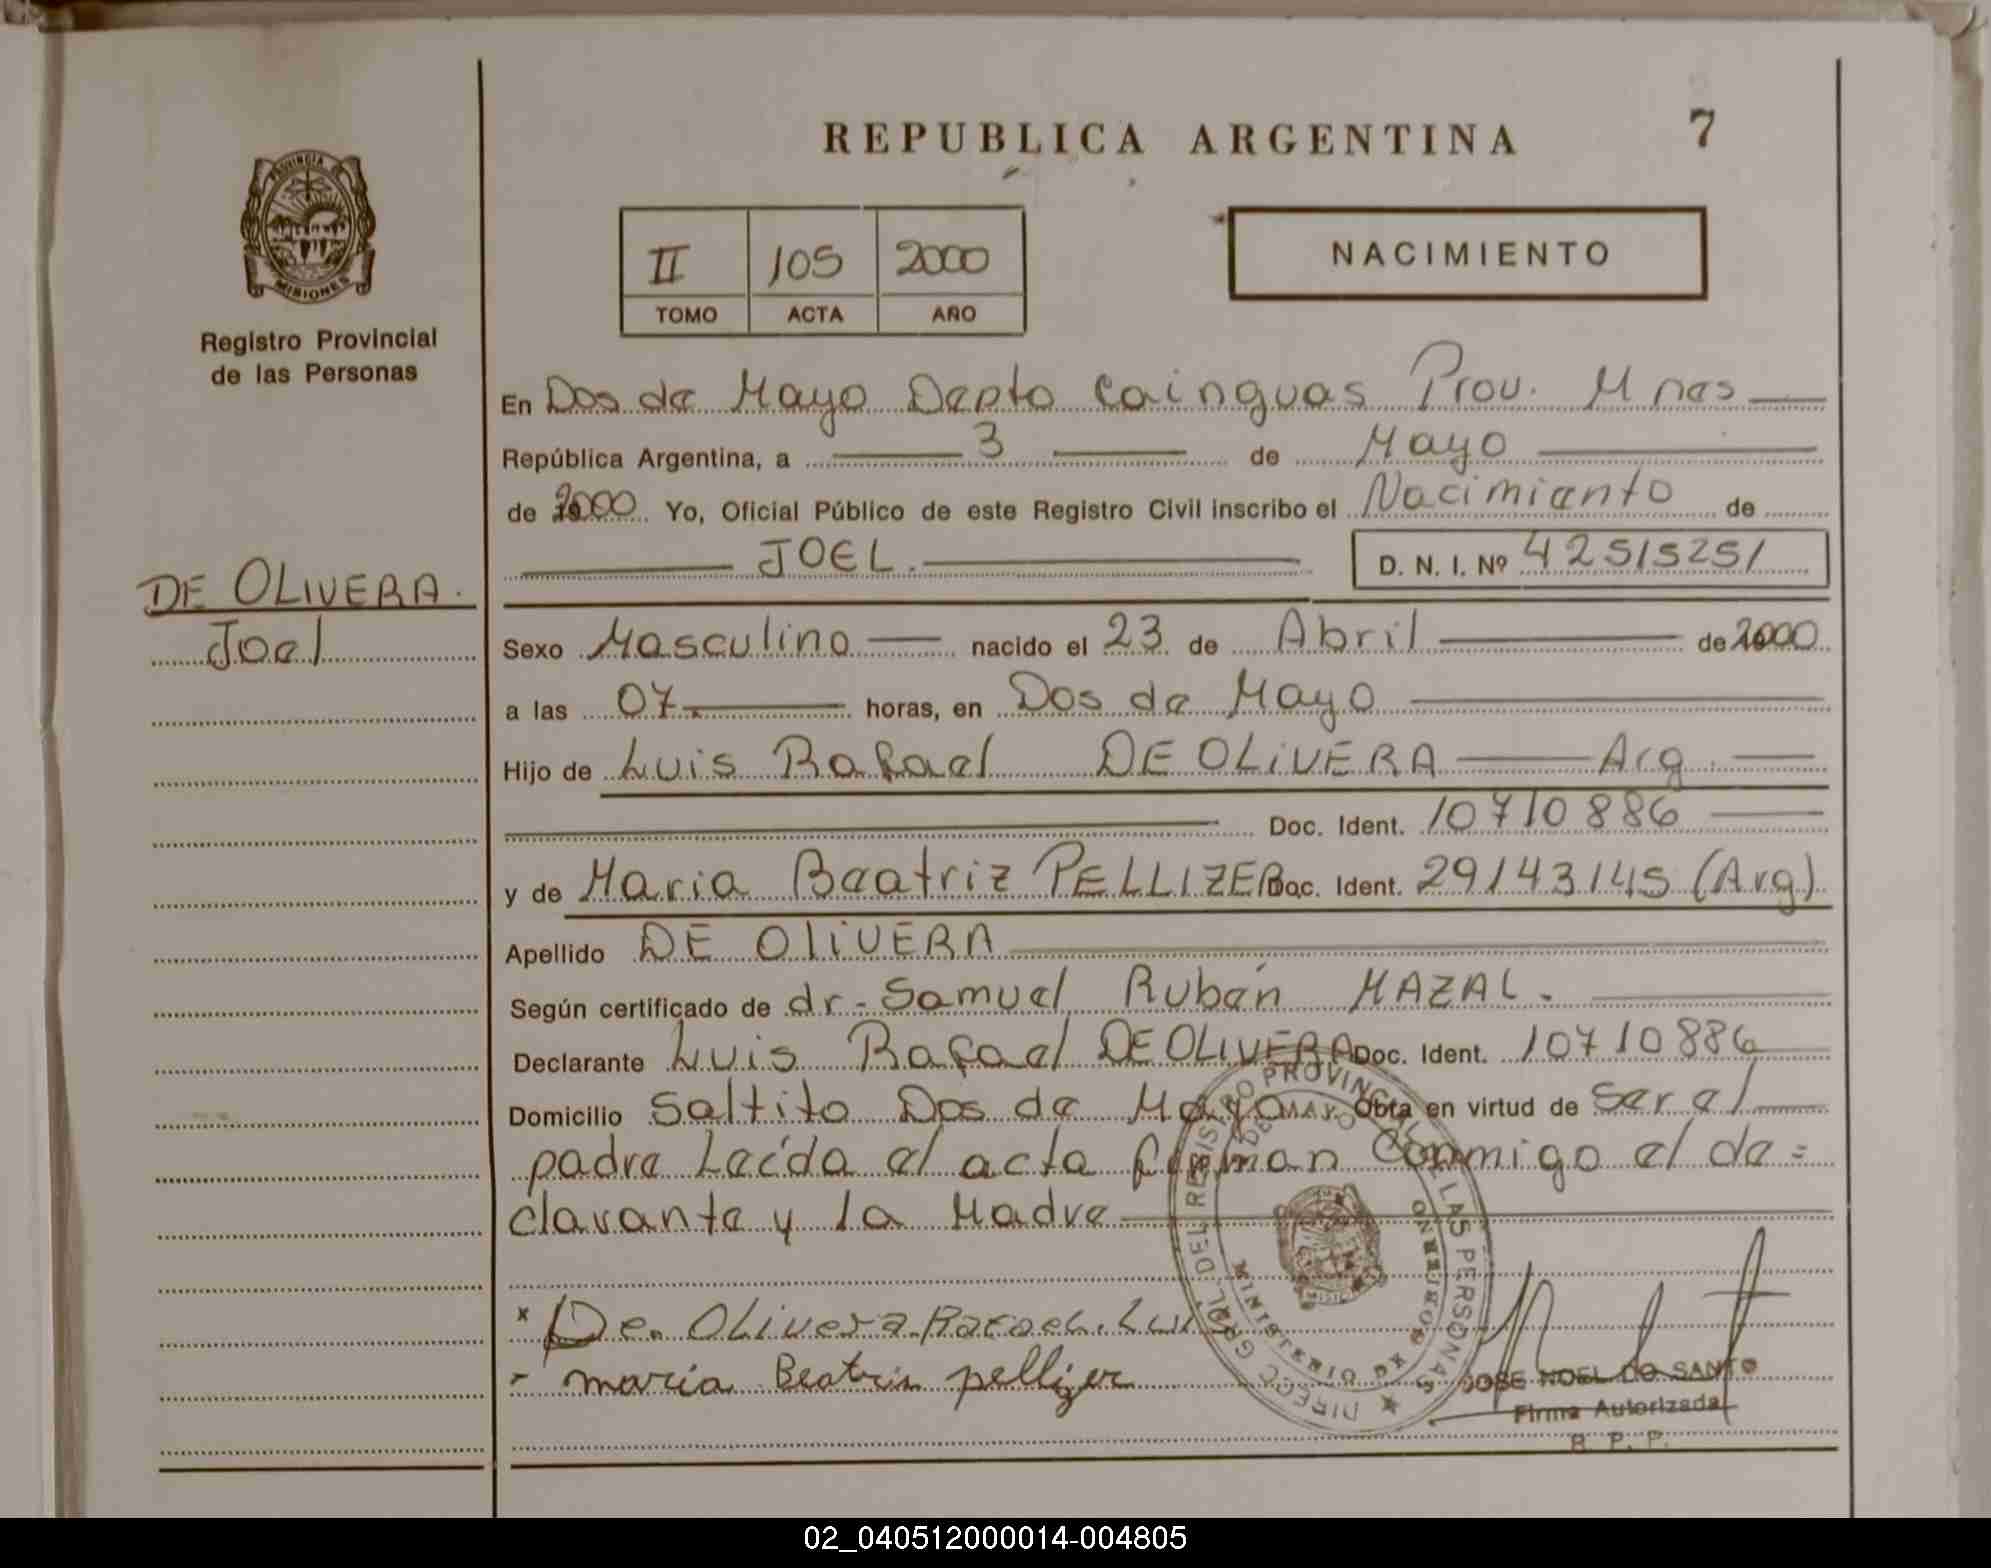 REPUBLICA ARGENTINA
7
PROVINCIA DE
MISIONES
Registro Provincial
de las Personas
II 105 2000
TOMO ACTA AÑO
NACIMIENTO
En Dos de Mayo Depto Cainguas Prov. Mnes
República Argentina, a 3 de Mayo
de 2000 Yo, Oficial Público de este Registro Civil inscribo el Nacimiento de
JOEL. D. N. I. Nº 42515251
DE OLIVERA.
Joel
Sexo Masculino nacido el 23 de Abril de 2000
a las 07. horas, en Dos de Mayo
Hijo de Luis Rafael DE OLiVERA Arg.
Doc. Ident. 10710886
y de Maria Beatriz PELLIZER Doc. Ident. 29143145 (Arg)
Apellido DE OliVERA
Según certificado de dr. Samuel Rubén MAZAL.
Declarante Luis Rafael DE OLIVERA Doc. Ident. 10710886
Domicilio Saltito Dos de Mayo Obra en virtud de Ser el
padre Leída el acta firman Conmigo el de=
clarante y la Madre
x De. OLivera. Rafael. Luis
- maria Beatris pellizer
DIRECC. GRAL. DEL REGISTRO PROVINCIAL DE LAS PERSONAS
MINISTERIO DE GOBIERNO
JOSE NOEL DO SANTO
Firma Autorizada
R. P. P.
02_040512000014-004805